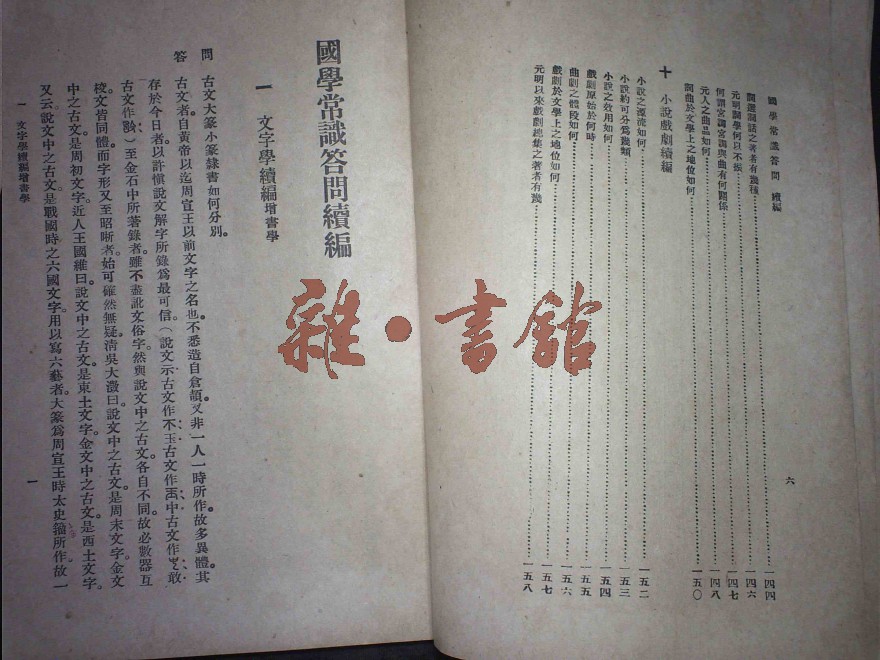 國學常識答問 續編
詞選詞話之著者有幾種 一四四
元明詞學何以不振 一四六
何謂宮調宮調與曲有何關係 一四七
元人之曲品如何 一四八
詞曲於文學上之地位如何 一五〇
十 小說戲劇續編
小說之源流如何 一五二
小說約可分為幾類 一五三
小說之效用如何 一五四
戲劇原始於何時 一五五
曲劇之體段如何 一五六
戲劇於文學上之地位如何 一五七
元明以來戲劇總集之著者有幾 一五八
六
國學常識答問續編
一 文字學續編增書學
問 古文大篆小篆隸書如何分別。
答 古文者。自黃帝以迄周宣王以前文字之名也。不悉造自倉頡。又非一人一時所作。故多異體。其
存於今日者。以許慎說文解字所錄為最可信。(說文示古文作 玉古文作 中古文作 敢
古文作 )至金石中所著錄者。雖不盡訛文俗字。然與說文中之古文。各自不同。故必數器互
校。文皆同體。而字形又至昭晰者。始可確然無疑。清吳大澂曰。說文中之古文。是周末文字。金文
中之古文。是周初文字。近人王國維曰。說文中之古文。是東土文字。金文中之古文。是西土文字。
又云。說文中之古文。是戰國時之六國文字。用以寫六藝者。大篆為周宣王時太史籀所作。故一
一 文字學續編增書學
一
雜·書館